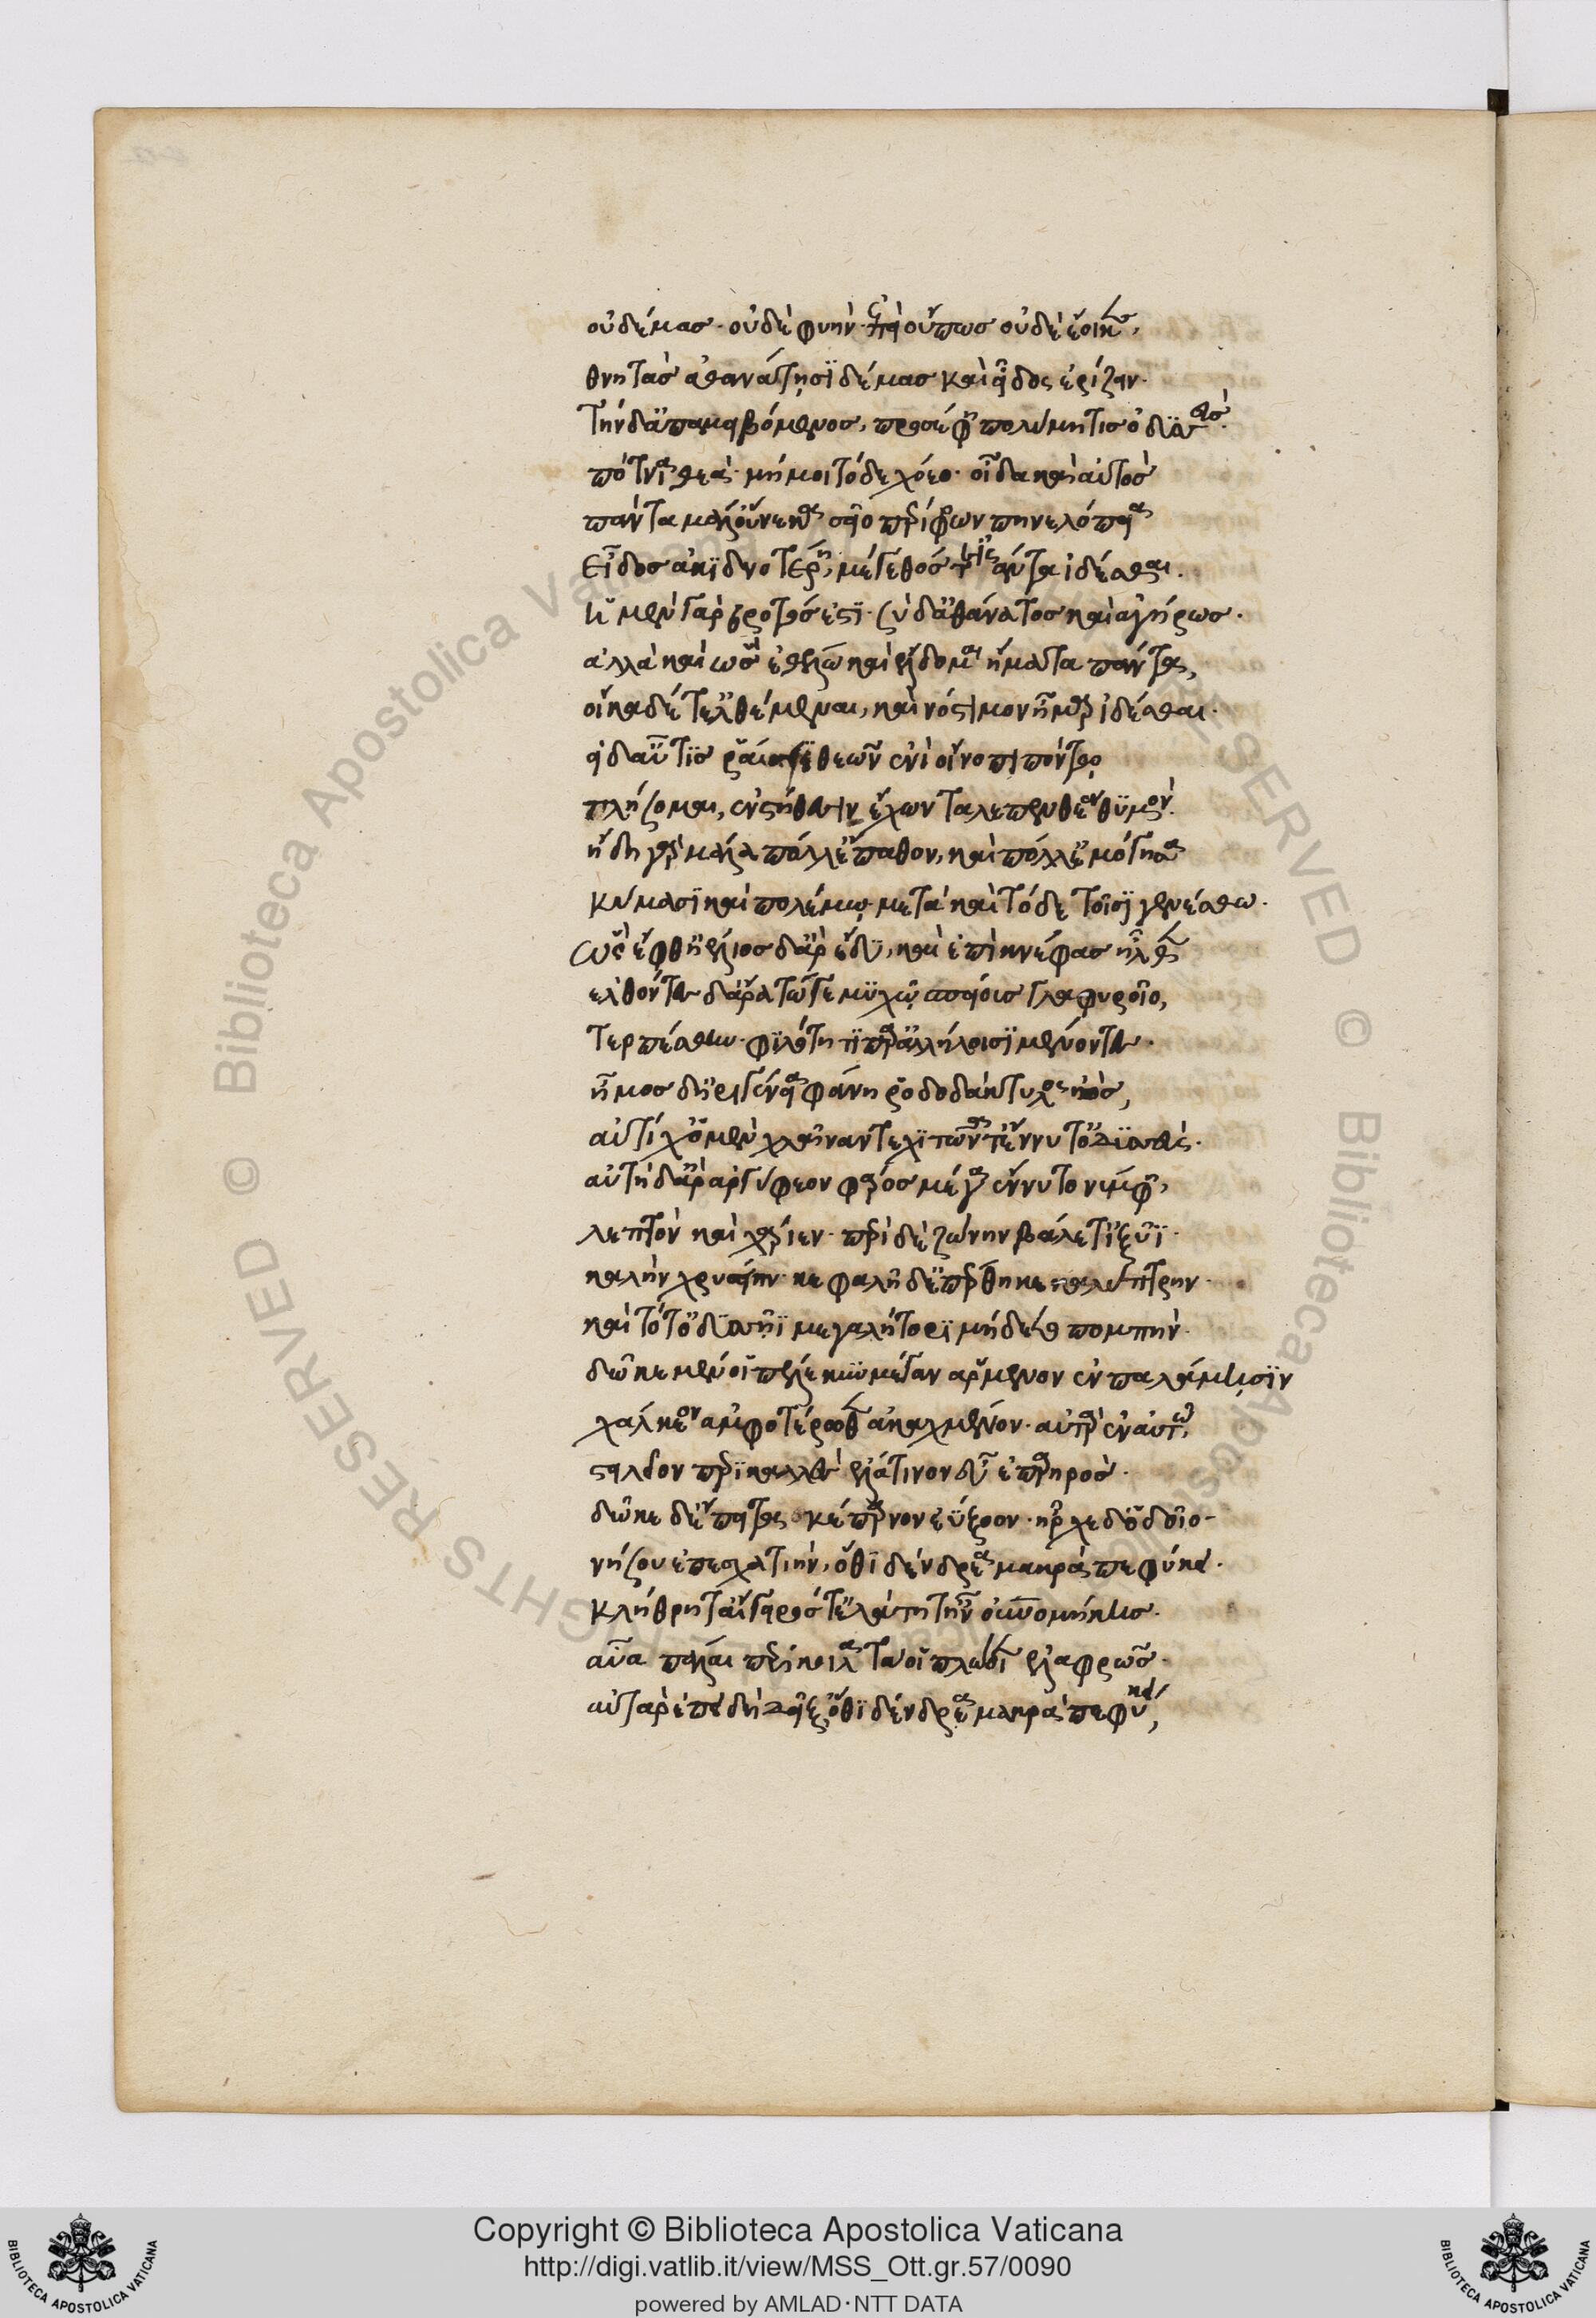 οὐ δέμας· οὐδὲ φυὴν· ἐπεὶ οὔπως οὐδὲ ἔοικεν,
θνητὰς ἀθανάτησϊ δέμας καὶ εἶδος ἐρίζειν·
Τὴν δ' ἀπαμειβόμενος, προσέφη πολύμητις ὀδυσσεύς·
πότνια θεὰ· μή μοι τόδε χώεο· οἶδα καὶ αὐτὸς
πάντα μάλ' οὕνεκα σεῖο περίφρων πηνελόπεια
Εἶδος ἀκιδνοτέρη, μέγεθός τ' εἰς ἄντα ἰδέσθαι.
ἡ μὲν γὰρ βροτός ἐστϊ· σὺ δ' ἀθάνατος καὶ ἀγήρως.
ἀλλὰ καὶ ὣς ἐθέλω καὶ ἐέλδομαι ἤματα πάντα,
οἴκαδέ τ' ἐλθέμεναι, καὶ νόστιμον ἦμαρ ἰδέσθαι.
εἰ δ' αὖ τϊς ῥαίησϊ θεῶν ἐνὶ οἴνοπι πόντῳ
τλήσομαι, ἐν στήθεσιν ἔχων ταλαπενθέα θϋμὸν.
ἤδη γὰρ μάλα πόλλ' ἔπαθον, καὶ πόλλ' ἐμόγησα
κύμασϊ καὶ πολέμῳ· μετὰ καὶ τόδε τοῖσϊ γενέσθω.
ὣς ἔφθ' ἠέλιος δ' ἄρ' ἔδυ, καὶ ἐπὶ κνέφας ἦλθεν
ἐλθόντες δ' ἄρα τώγε μϋχῷ σπείους γλαφυροῖο,
Τερπέσθην φϊλότητϊ παρ' ἀλλήλοισϊ μένοντες.
ἦμος δ' ἠριγένεια φάνη ῥοδοδάκτυλος ἠὼς,
αὐτίχ' ὁ μὲν χλαῖναν τε χϊτῶνά τ' ἕννυτ' ὀδϋσσεὺς.
αὐτὴ δ' ἄρ' ἀργύφεον φᾶρος μέγα ἕννυτο νύμφη,
λεπτὸν καὶ χαρίεν· περὶ δὲ ζώνην βάλετ' ἰξυῖ·
καλὴν χρυσείην· κεφαλῇ δ' ἐπέθηκε καλύπτρην.
καὶ τότ' ὀδϋσσῆϊ μεγαλήτορϊ μήδετο πομπὴν.
δῶκε μέν οἱ πέλεκυν μέγαν ἄρμενον ἐν παλάμησϊν
χάλκεον ἀμφοτέρωθεν ἀκαχμένον· αὐτὰρ ἐν αὐτῷ,
στειλειὸν περϊκαλλὲς ἐλάϊνον εὖ ἐναρηρὸς.
δῶκε δ' ἔπειτα σκέπαρνον ἐΰξοον· ἦρχε δ' ὁδοῖο·
νήσου ἐπ' ἐσχατιὴν, ὅθϊ δένδρεα μακρὰ πεφύκει.
κλήθρη τ' αἴγειρός τ' ἐλάτη τ' ἦν οὐρανομήκης.
αὖα πάλαι περίκηλα τά οἱ πλώοιεν ἐλαφρῶς.
αὐτὰρ ἐπειδὴ δεῖξ' ὅθϊ δένδρεα μακρὰ πεφύκει,
Copyright © Biblioteca Apostolica Vaticana
http://digi.vatlib.it/view/MSS_Ott.gr.57/0090
powered by AMLAD·NTT DATA